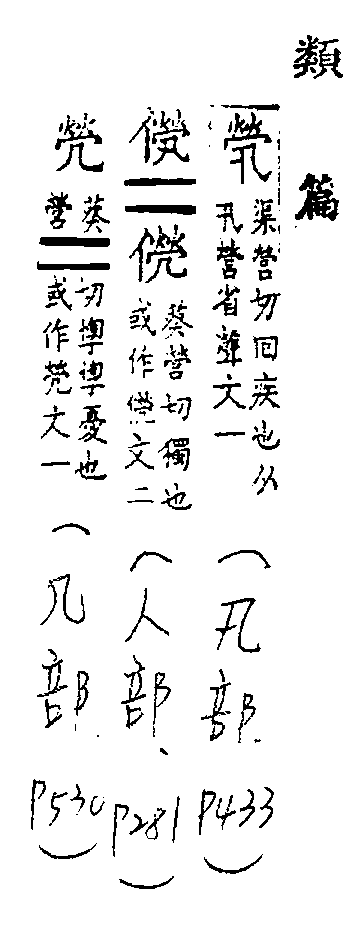 類篇
煢
渠營切回疾也从
卂營省聲文一
(卂部
P433)
儝
葵營切獨也
或作文二
(人部、
P281)
焭
葵
營
切憂也
或作文一
(几部
P530)